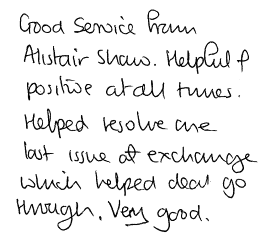 Good Service from
Alistair Shaw. Helpful &
positive at all times.
Helped resolve one
last issue at exchange
which helped deal go
through. Very good.